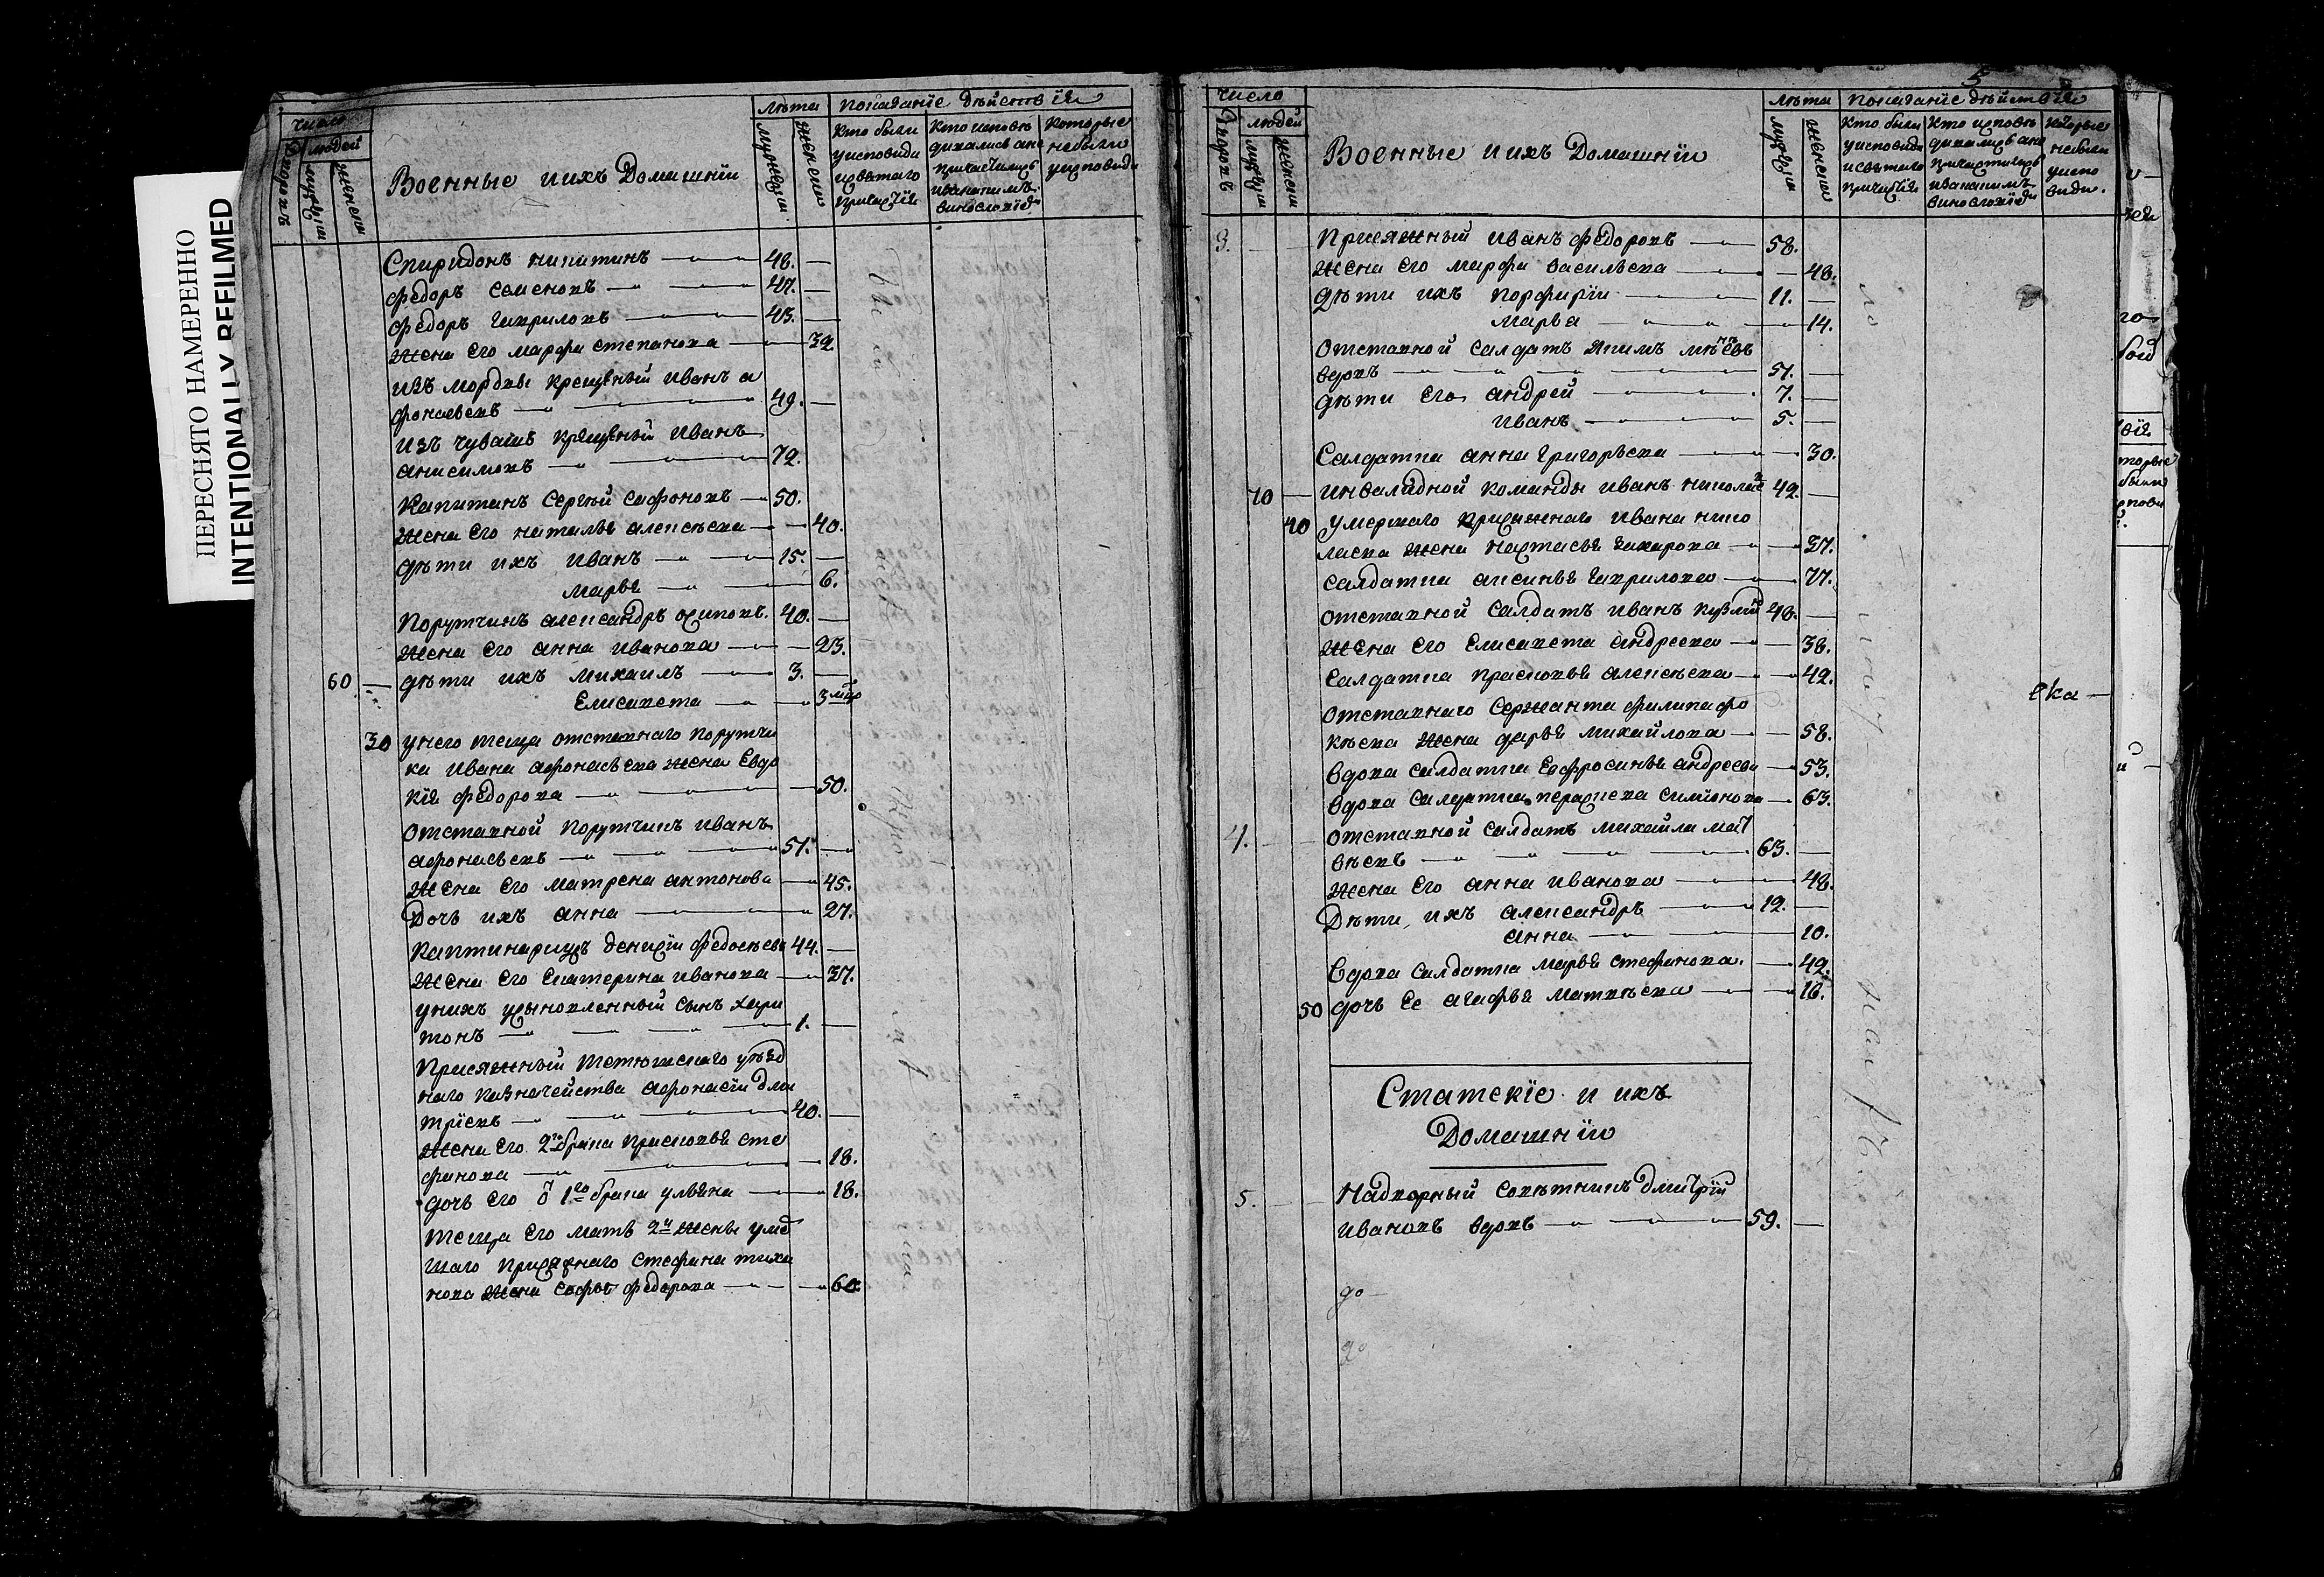 ПЕРЕСНЯТО НАМЕРЕННО
INTENTIONALLY REFILMED
число
людей
дворовъ
мужеска
женска
Военные и ихъ Домашнїи
лѣта
мужеска
женска
показанїе дѣйствїя
Кто были
у исповѣди
и святаго
причастїя
Кто исповѣ
дывались а не
причастились
и за какимъ
винословїемъ
Которые
не были
у исповѣди
Спиридонъ никитинъ 48.
федоръ Семеновъ 47.
федоръ Гавриловъ 43.
жена его марфа степанова 32.
изъ мордвы крещеный иванъ а
фонасьевъ 49.
изъ чувашъ крещеный иванъ
анисимовъ 72.
Капитанъ Сергѣй Сафоновъ 50.
жена его наталья алексѣева 40.
дѣти ихъ иванъ 15.
марья 6.
Порутчикъ александръ осиповъ. 40.
жена его анна иванова 23.
60 дѣти ихъ михаилъ 3.
Елисавета 3 мца
30 у него теща отставнаго порутчи
ка ивана афонасьева жена Евдо
кїя федорова 50.
отставной порутчикъ иванъ
афонасьевъ 51.
жена его матрена антонова 45.
Дочь ихъ анна 27.
Каптинармусъ денисїй федосѣевъ 44.
жена его екатерина иванова 37.
у нихъ усыновленный сынъ хари
тонъ 1.
Присяжный тетюшскаго уѣзд
наго казначейства афонасїй дми
трїевъ 40.
жена его 2го брака прасковья сте
фанова 18.
дочь его ѿ 1го брака ульяна 18.
теща его мать 2й жены умер
шаго присяжнаго стефана тиха
нова жена Софья федорова 60.
5
число
людей
дворовъ
мужеска
женска
Военные и ихъ Домашнїи
лѣта
мужеска
женска
показанїе дѣйствїя
Кто были
у исповѣди
и святаго
причастїя
Кто исповѣ
дывались а не
причастились
и за какимъ
винословїемъ
Которые
не были
у испо
вѣди.
3. Присяжный иванъ федоровъ 58.
жена его марфа васильева 48.
дѣти ихъ порфирїй 11.
марья 14.
отставной салдатъ якимъ
вдовъ 51.
дѣти его андрей 7.
иванъ 5.
Салдатка анна григорьева 30.
70 инвалидной команды иванъ николаевъ 42.
40 умершаго присяжнаго ивана нико
лаева жена настасья захарова 37.
салдатка аксинья гаврилова 77.
отставной салдатъ иванъ кузминъ 48.
жена его елисавета андреева 38.
салдатка прасковья алексѣева 42.
отставнаго сержанта филипа фо
кѣева жена дарья михайлова 58.
вдова салдатка ефросинья андреева 53.
вдова салдатка параскева симионова 63.
4. отставной салдатъ михайла мат
вѣевъ 63.
жена его анна иванова 48.
Дѣти ихъ александръ 12.
анна 10.
вдова салдатка марья стефанова. 42.
50 дочь ее агафья матвѣева 16.
Статскїе и ихъ
Домашнїи
5. Надворный совѣтникъ дмитрїй
ивановъ вдовъ 59.
до
до
ека